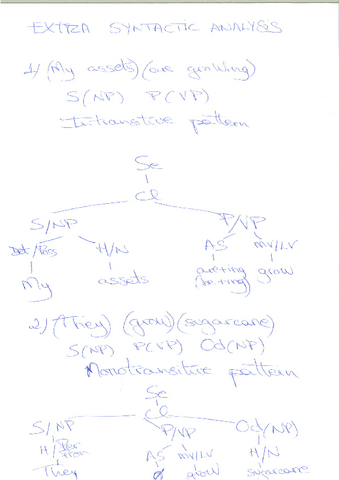 EXTRA SYNTACTIC ANALYSIS
1) (My assets) (are growing)
S(NP) P(VP)
Intransitive pattern
Se
Cl
S/NP P/VP
Det/Poss H/N AS MV/LV
My assets are+ing grow
(be+ing)
2) (They) (grow) (sugarcane)
S(NP) P(VP) Od(NP)
Monotransitive pattern
Se
Cl
S/NP P/VP Od(NP)
H/Per- AS MV/LV H/N
pron
They Ø grow sugarcane